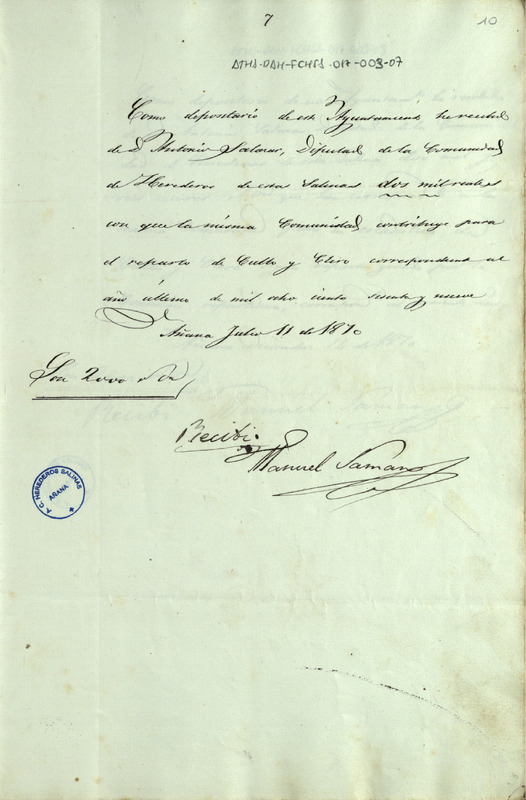 7
10
ATHA-DAH-FCHSA-017-009-07
Como depositario de este Ayuntamiento he recibido
de D. Antonio Salazar, Diputado de la Comunidad
de Herederos de estas Salinas dos mil reales
con que la misma Comunidad contribuye para
el reparto de Culto y Clero correspondiente al
año último de mil ocho cientos sesenta y nueve
Añana Julio 11 de 1870
Son 2000 r.s v.n
Recibi.
Manuel Samano
A. C. HEREDEROS SALINAS
AÑANA